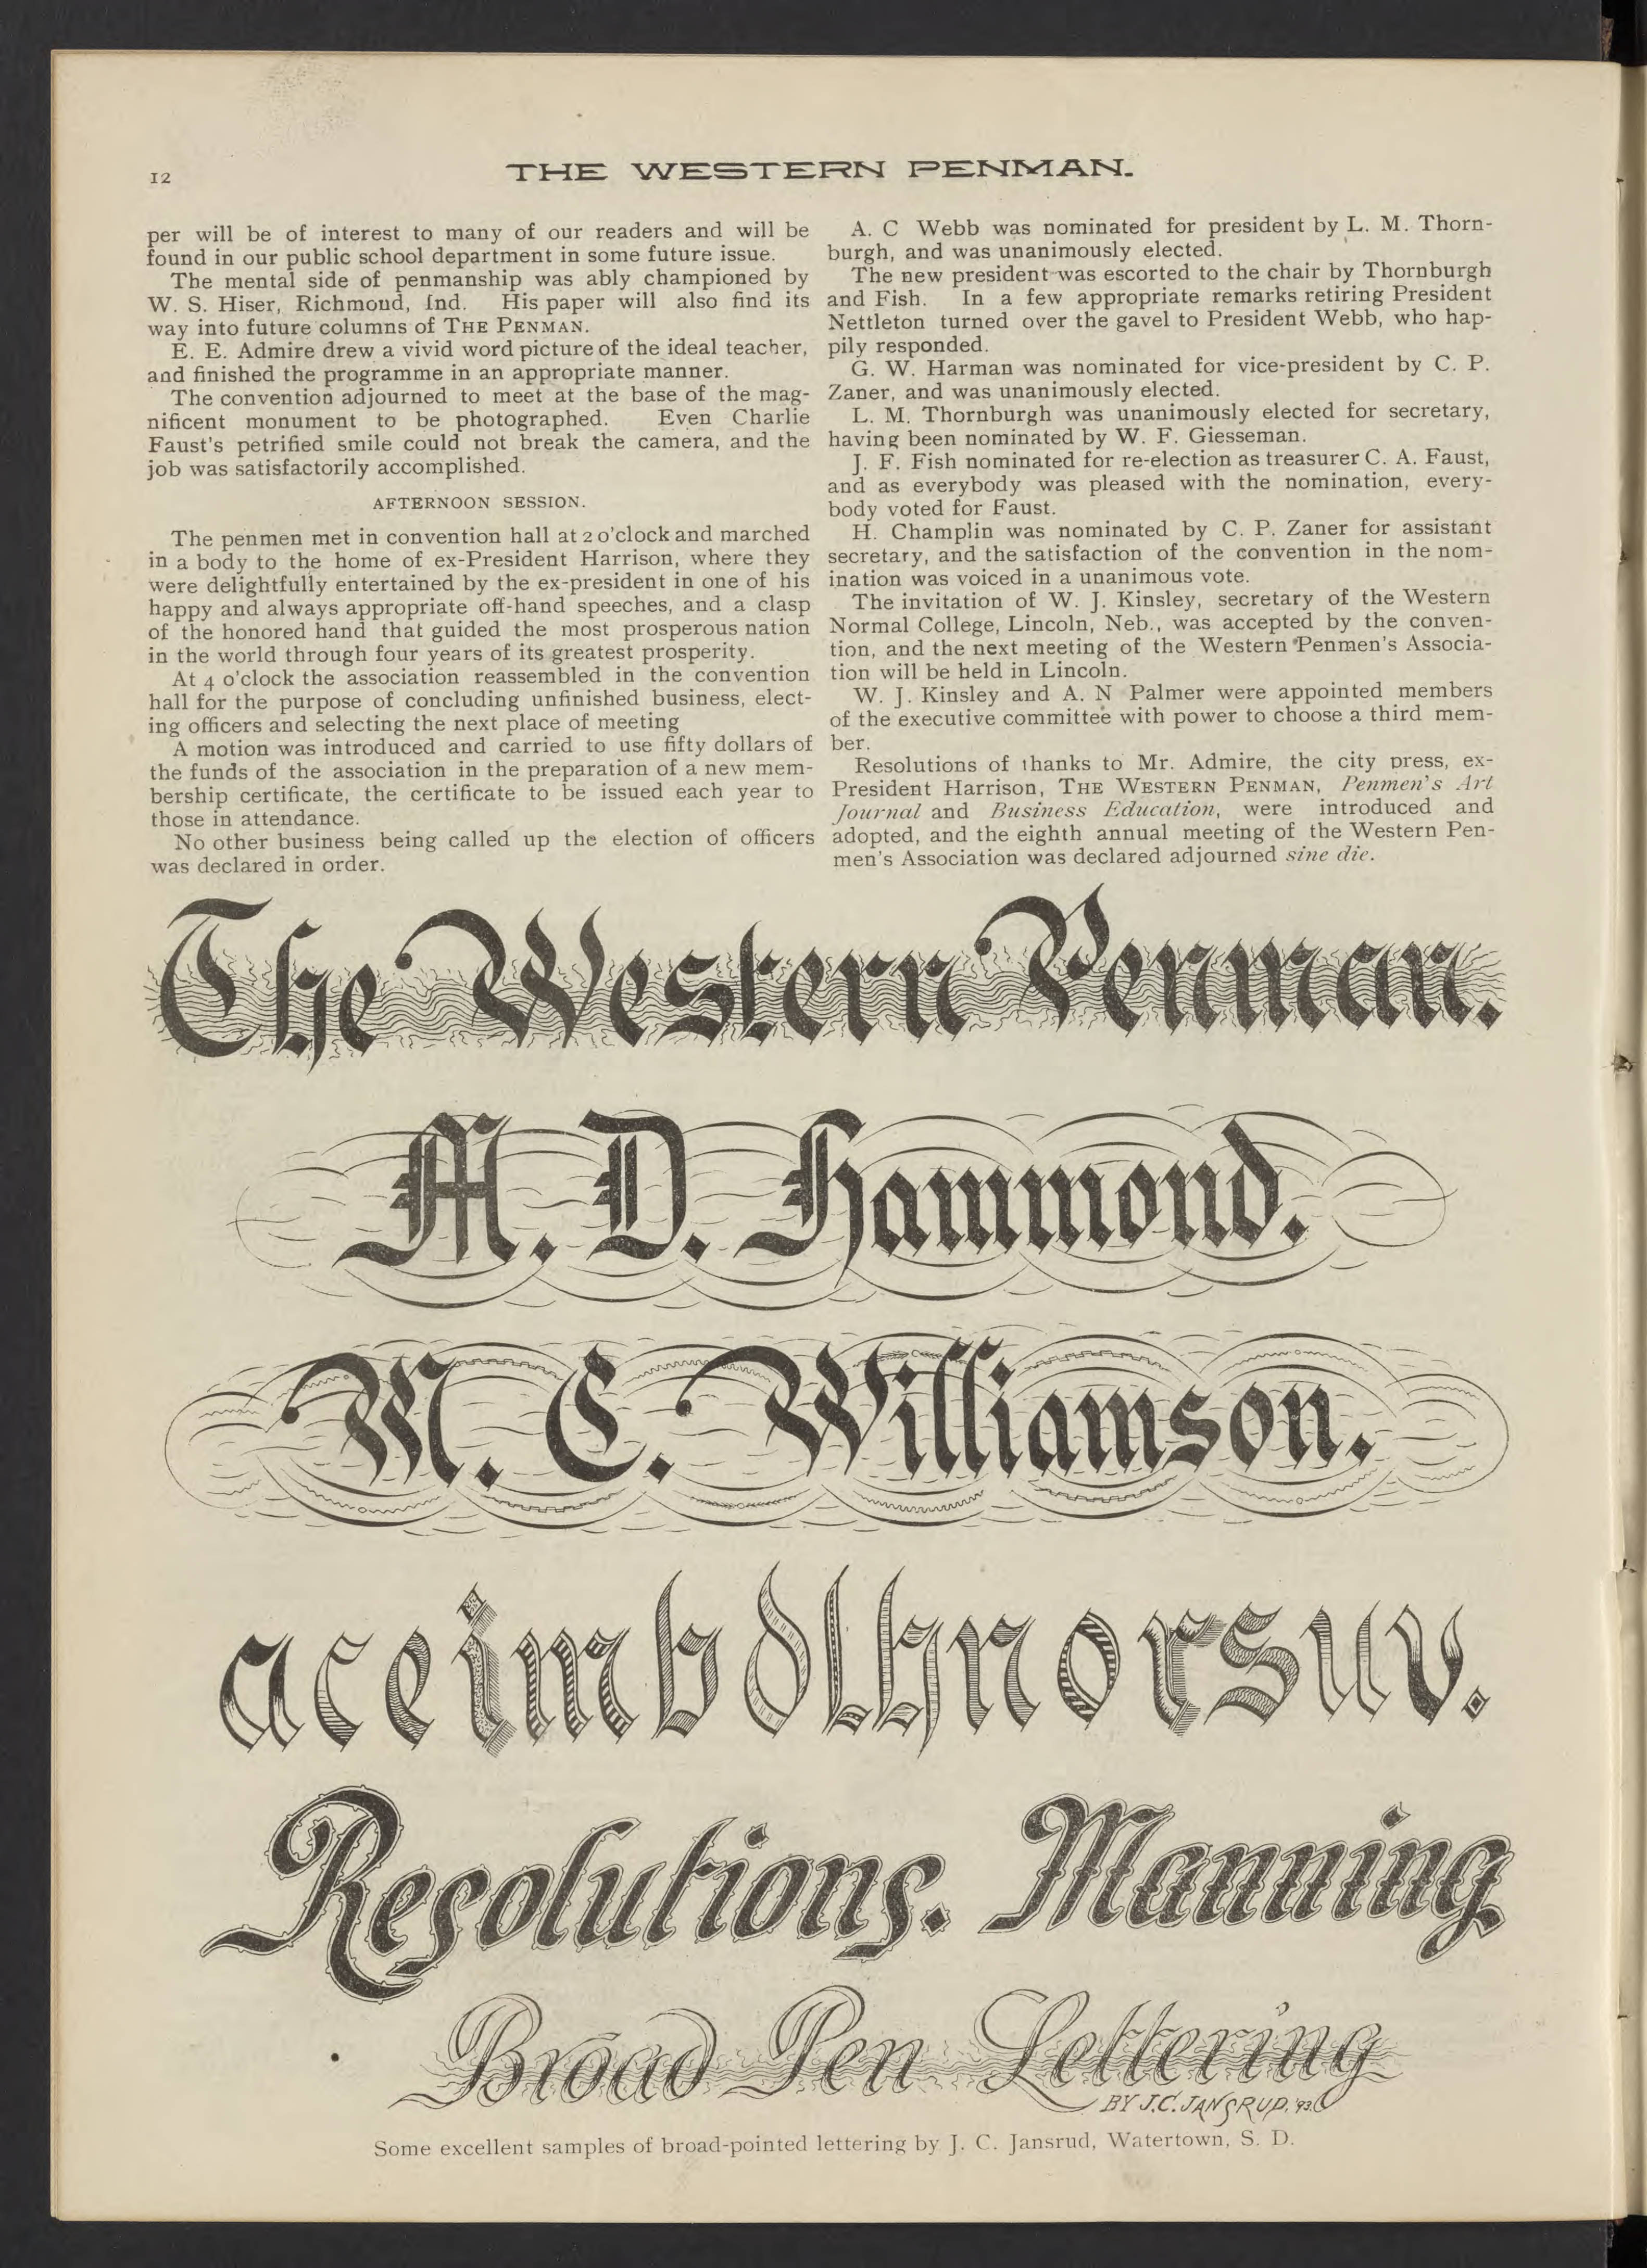 12
THE WESTERN PENMAN.
per will be of interest to many of our readers and will be
found in our public school department in some future issue.
The mental side of penmanship was ably championed by
W. S. Hiser, Richmond, Ind. His paper will also find its
way into future columns of THE PENMAN.
E. E. Admire drew a vivid word picture of the ideal teacher,
and finished the programme in an appropriate manner.
The convention adjourned to meet at the base of the mag-
nificent monument to be photographed. Even Charlie
Faust's petrified smile could not break the camera, and the
job was satisfactorily accomplished.
AFTERNOON SESSION.
The penmen met in convention hall at 2 o'clock and marched
in a body to the home of ex-President Harrison, where they
were delightfully entertained by the ex-president in one of his
happy and always appropriate off-hand speeches, and a clasp
of the honored hand that guided the most prosperous nation
in the world through four years of its greatest prosperity.
At 4 o'clock the association reassembled in the convention
hall for the purpose of concluding unfinished business, elect-
ing officers and selecting the next place of meeting
A motion was introduced and carried to use fifty dollars of
the funds of the association in the preparation of a new mem-
bership certificate, the certificate to be issued each year to
those in attendance.
No other business being called up the election of officers
was declared in order.
A. C Webb was nominated for president by L. M. Thorn-
burgh, and was unanimously elected.
The new president was escorted to the chair by Thornburgh
and Fish. In a few appropriate remarks retiring President
Nettleton turned over the gavel to President Webb, who hap-
pily responded.
G. W. Harman was nominated for vice-president by C. P.
Zaner, and was unanimously elected.
L. M. Thornburgh was unanimously elected for secretary,
having been nominated by W. F. Giesseman.
J. F. Fish nominated for re-election as treasurer C. A. Faust,
and as everybody was pleased with the nomination, every-
body voted for Faust.
H. Champlin was nominated by C. P. Zaner for assistant
secretary, and the satisfaction of the convention in the nom-
ination was voiced in a unanimous vote.
The invitation of W. J. Kinsley, secretary of the Western
Normal College, Lincoln, Neb., was accepted by the conven-
tion, and the next meeting of the Western Penmen's Associa-
tion will be held in Lincoln.
W. J. Kinsley and A. N Palmer were appointed members
of the executive committee with power to choose a third mem-
ber.
Resolutions of thanks to Mr. Admire, the city press, ex-
President Harrison, THE WESTERN PENMAN, Penmen's Art
Journal and Business Education, were introduced and
adopted, and the eighth annual meeting of the Western Pen-
men's Association was declared adjourned sine die.
The Western Penman.
M. D. Hammond.
M. C. Williamson.
a c e i m b d l h n o r s u v.
Resolutions. Manning
Broad Pen Lettering
BY J.C. JANSRUD. '93.
Some excellent samples of broad-pointed lettering by J. C. Jansrud, Watertown, S. D.